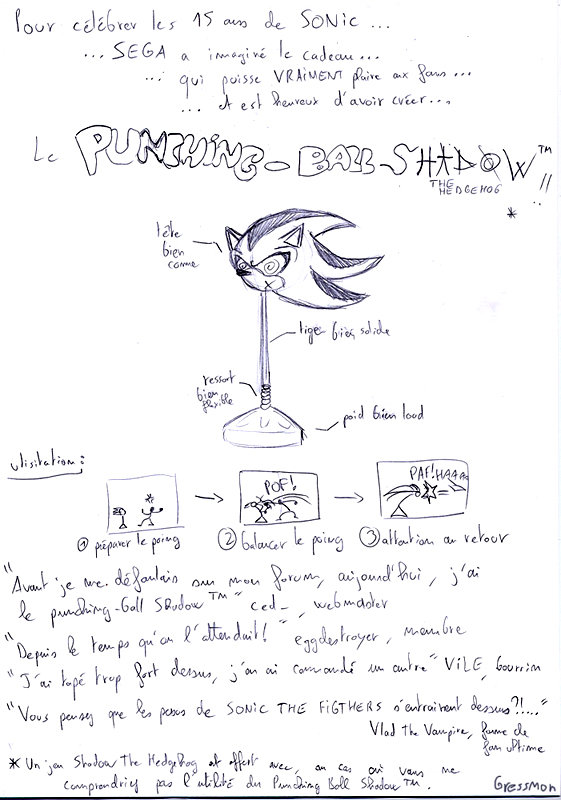 Pour célébrer les 15 ans de SONIC ...
... SEGA a imaginé le cadeau...
... qui puisse VRAIMENT plaire aux fans...
... et est heureux d'avoir créer...
Le PUNCHING-BALL-SHADOW™!!
THE HEDGEHOG
*
tête bien conne
tige bien solide
ressort bien flexible
poid bien lourd
utilisation :
POF!
PAF! HAAAA
① préparer le poing
② balancer le poing
③ attention au retour
"Avant je me défoulais sur mon forum, aujourd'hui, j'ai
le punching-ball Shadow™" ced_, webmaster
"Depuis le temps qu'on l'attendait!" eggdestroyer, membre
"J'ai tapé trop fort dessus, j'en ai comandé un autre" ViLE, bourrin
"Vous pensez que les persos de SONIC THE FIGTHERS s'entrainent dessus?!..."
Vlad The Vampire, forme de
fan ultime
* Un jeu Shadow The Hedgehog est offert avec, au cas où vous ne
comprendriez pas l'utilité du Punching Ball Shadow™.
Gressmon